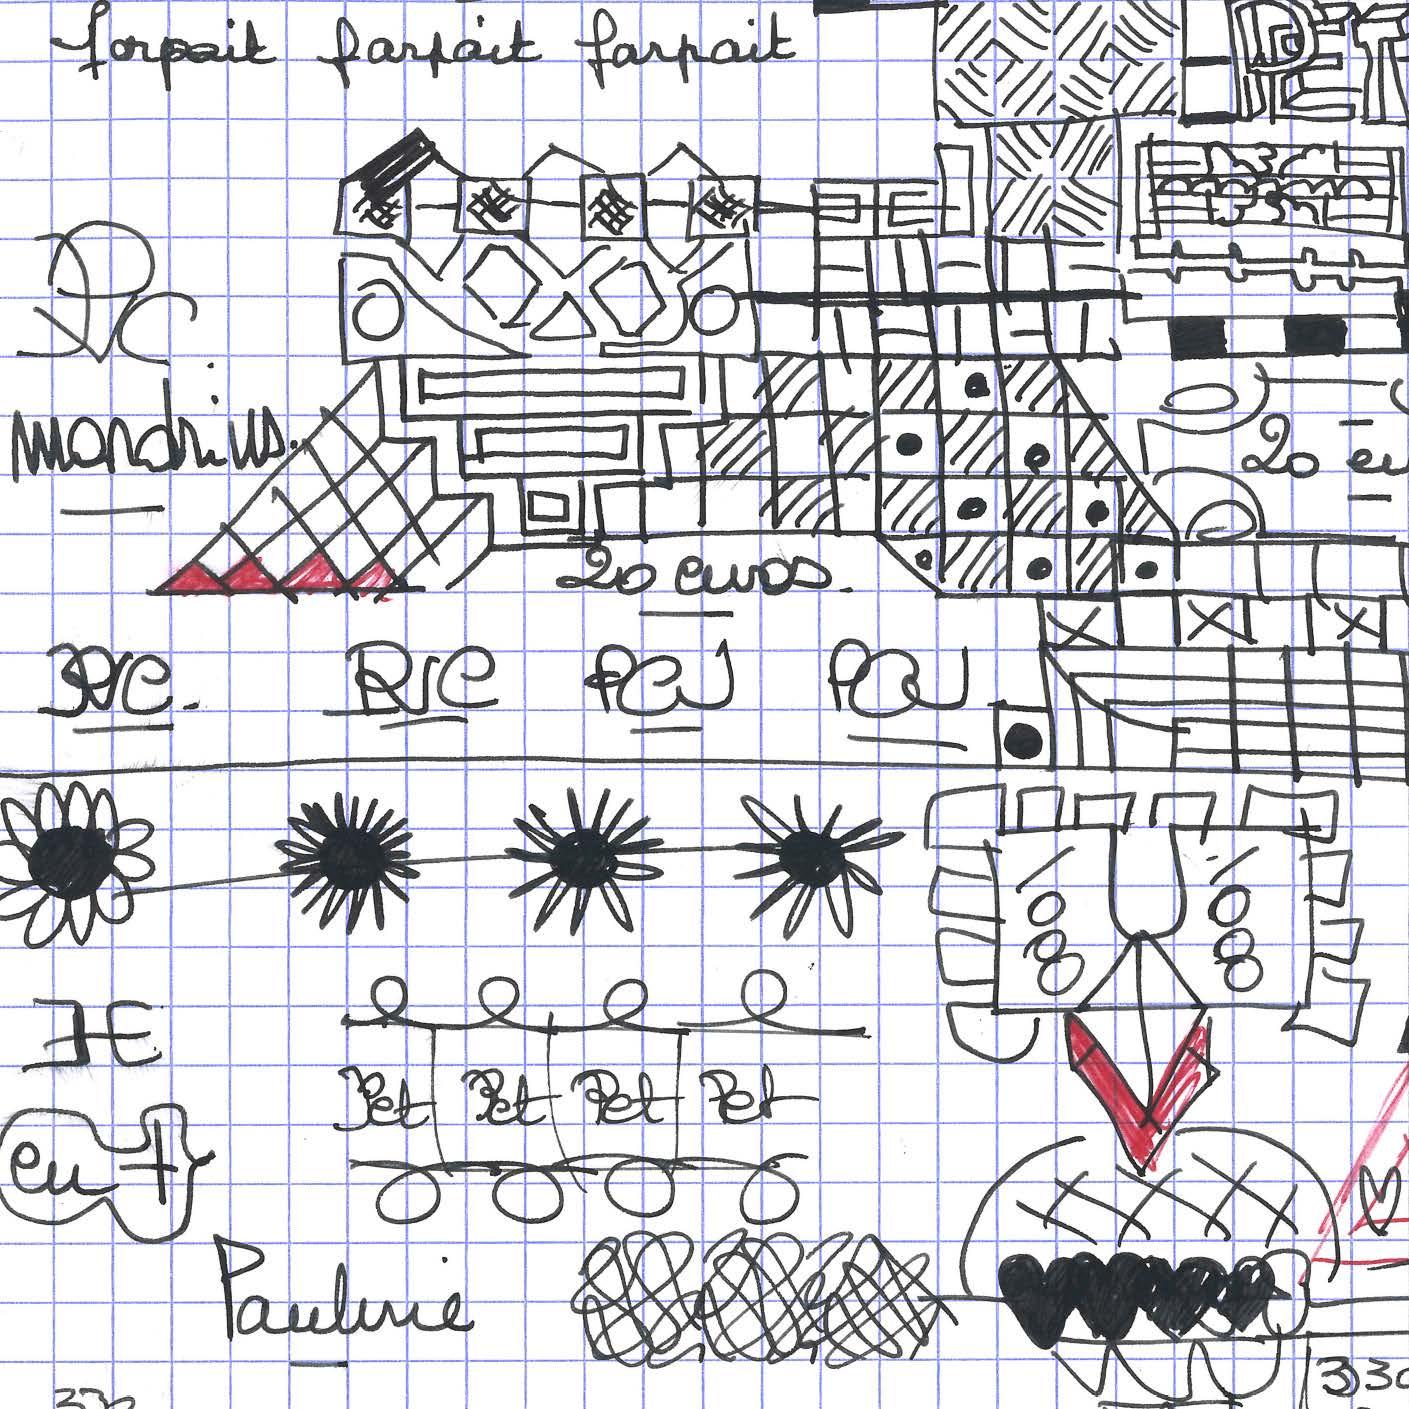 forpait farfait farpait
PET
PVC
mondrius.
20 eu
20 euros.
PVC. PVC PCV PCV
JE
Pet Pet Pet Pet
eu +
Pauline
330 330